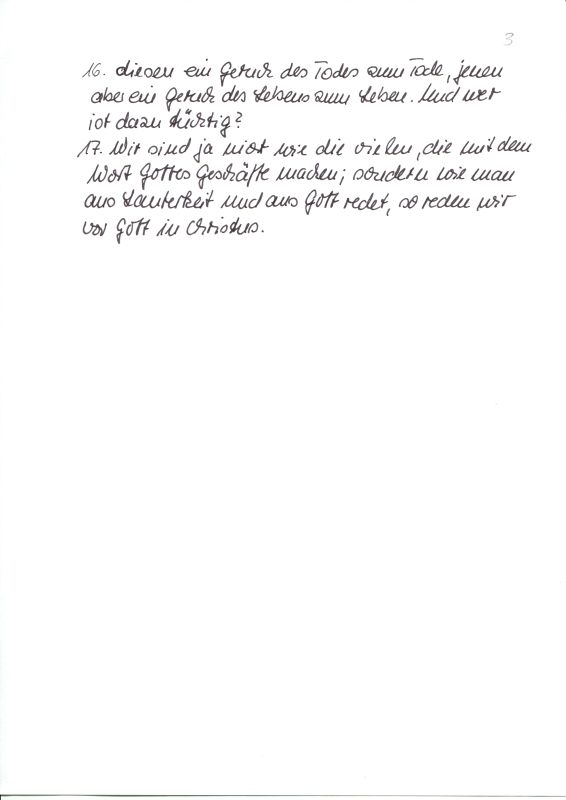 3
16. diesen ein Geruch des Todes zum Tode, jenen
aber ein Geruch des Lebens zum Leben. Und wer
ist dazu tüchtig?
17. Wir sind ja nicht wie die vielen, die mit dem
Wort Gottes Geschäfte machen; sondern wie man
aus Lauterkeit und aus Gott redet, so reden wir
vor Gott in Christus.